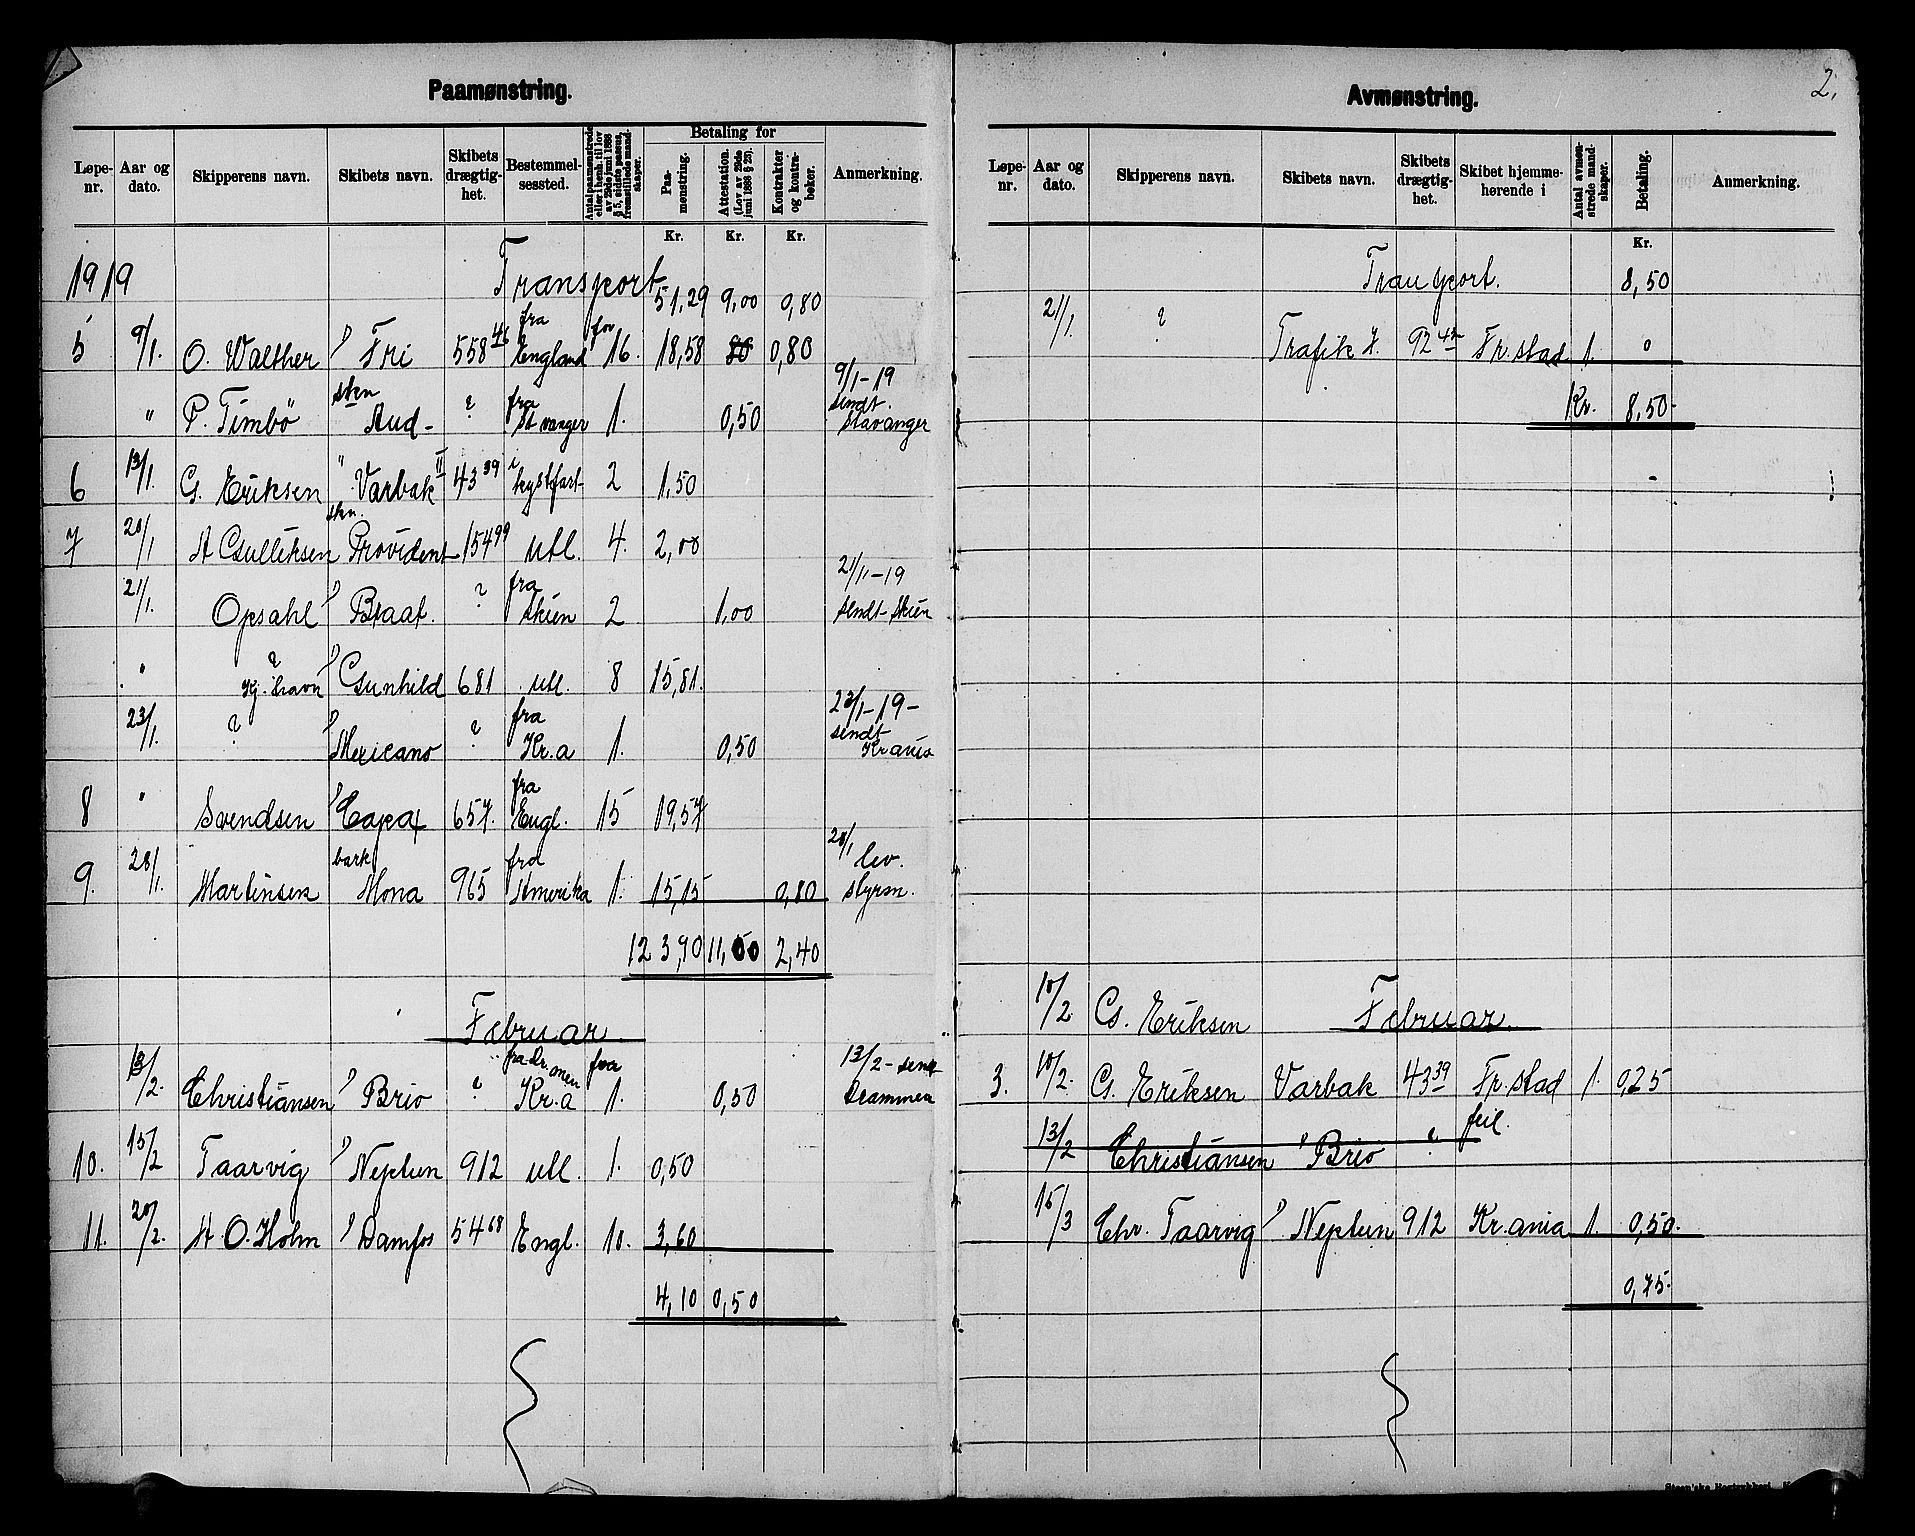 2.
Paamønstring.
Løpe-nr. Aar og dato. Skipperens navn. Skibets navn. Skibets drægtig-het. Bestemmel-sessted. Antal paamønstrede eller i henh. til lov av 29de juni 1888 § 5, sidste passus, fremstillede mand-skaper. Betaling for Paa-mønstring. Attestation. (Lov av 29de juni 1888 § 23). Kontrakter og kontra-bøker. Anmerkning.
Kr. Kr. Kr.
1919 Transport 51,29 9,00 0,80
5 9/1. O. Walther Fri 558 46 fra England for 16. 18,58 80 0,80
" P. Timbö sken Aud - ? fra St vanger 1. 0,50 9/1-19 sendt. Stavanger
6 13/1. G. Eriksen " Varbak II 43 39 i kystfart- 2 1,50
7 20/1 A Gulliksen skn. Provident 154 99 utl. 4. 2,00
21/1. Opsahl Staal. ? fra Skien 2 1,00 21/1-19 sendt- Skien
" ? Kg. havn Gunhild 681 utl. 8 15,81.
23/1. ? Mexicano ? fra Kr.a 1. 0,50 23/1-19- sendt Krania
8 " Svendsen 657. fra Engl. 15 19,57
9. 28/1. Martinsen bark Mona 965 fra Amerika 1. 15,15 0,80 28/1 lev. styrm.
123,90 11,00 2,40
Februar.
13/2. Christiansen Brio ? fra Dr.men Kr.a 1. 0,50 13/2- send Drammen
10. 15/2 Taarvig Neptun 912 utl. 1. 0,50
11. 20/2. A. O. Holm Damfos 54 68 Engl. 10. 3,60
4,10 0,50
Avmønstring.
Løpe-nr. Aar og dato. Skipperens navn. Skibets navn. Skibets drægtig-het. Skibet hjemme-hørende i Antal avmøn-strede mand-skaper. Betaling. Anmerkning.
Kr.
Transport. 8,50
21/1. ? Trafik 92 42 Fr.stad 1. 0
Kr. 8,50-
10/2 G. Eriksen Februar.
3. 10/2. G. Eriksen Varbak 43 39 Fr.stad 1. 0,25
13/2 Christiansen Brio ? feil.
15/3 Chr. Taarvig Neptun 912 Kr.ania 1. 0,50.
0,75.